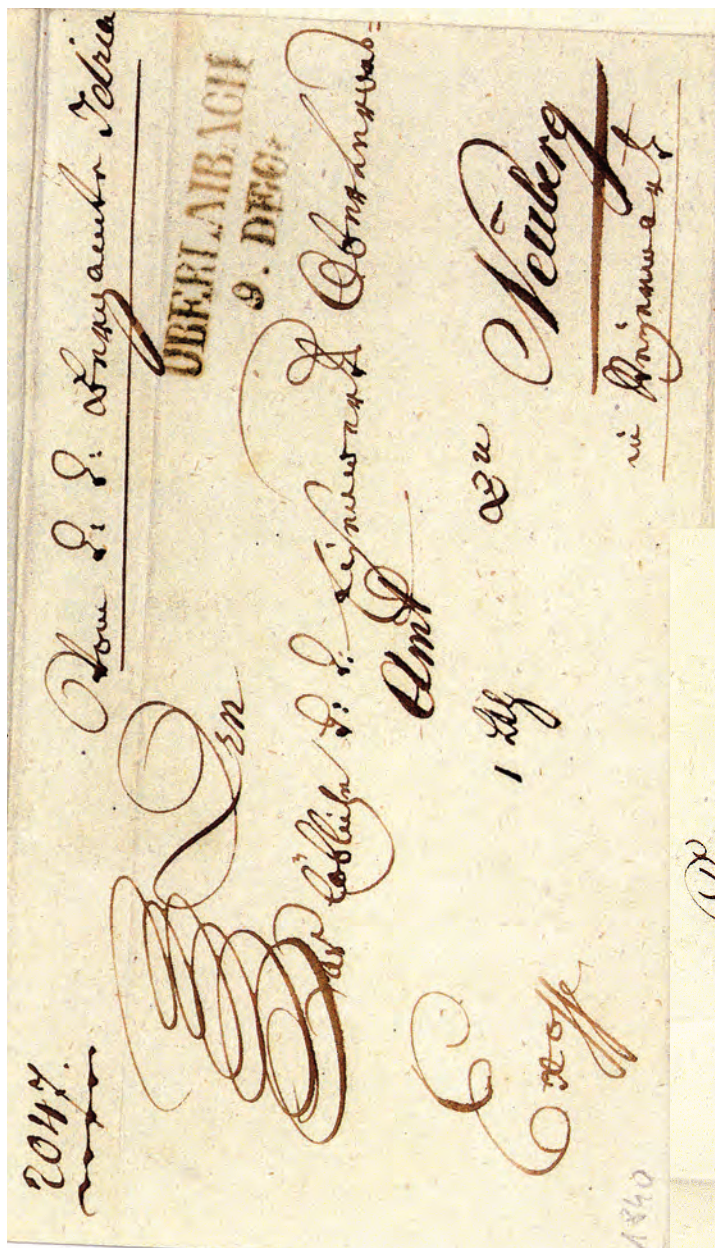 2047.
Vom K: K: Bergamte Idria
OBERLAIBACH
9. DEC.
An
das Löbliche K: K: Eisenwerks Oberverwes=
Amt
1 Sch zu Neuberg
Ex offo
in Steyermark
1840